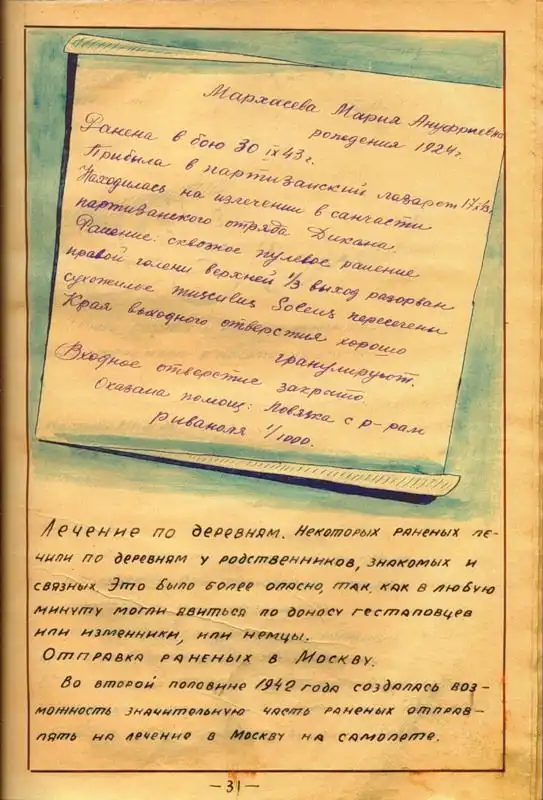 Мархасева Мария Ануфриевна
рождения 1924 г.
Ранена в бою 30 IX 43 г.
Прибыла в партизанский лазарет 17 X 43 г.
Находилась на излечении в санчасти
партизанского отряда Дикана.
Ранение: сквозное пулевое ранение
правой голени верхней 1/3 выход разорван
сухожилие Soleus пересечены
Края выходного отверстия хорошо
гранулируют.
Входное отверстие закрыто
Оказана помощ: повязка с р-рам
риваноля 1/1000.
Лечение по деревням. Некоторых раненых ле-
чили по деревням у родственников, знакомых и
связных. Это было более опасно, так, как в любую
минуту могли явиться по доносу гестаповцев
или изменники, или немцы.
Отправка раненых в Москву.
Во второй половине 1942 года создалась воз-
можность значительную часть раненых отправ-
лять на лечение в Москву на самолете.
— 31 —